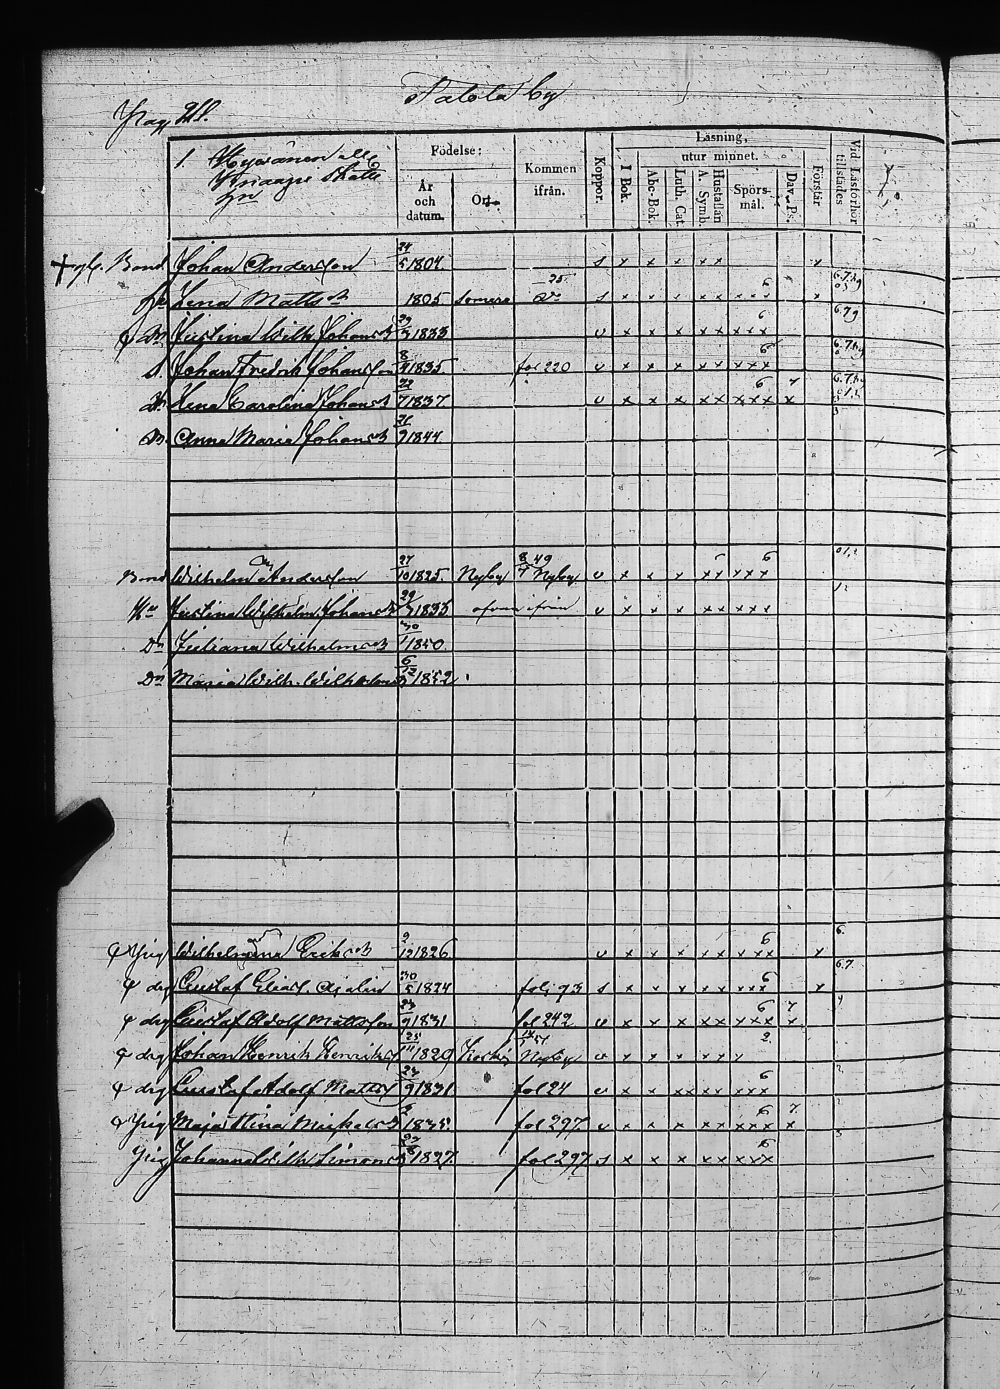 Pag. 211.
Talola by
1. Hyvänen elle
Knaapi Skatte
hn
Födelse:
År och datum.
Ort.
Kommen ifrån.
Koppor.
Läsning,
utur minnet.
I Bok.
Abc-Bok.
Luth. Cat.
Hustaflan A. Symb.
Spörsmål.
Dav. Ps.
Förstår
Vid Läsförhör tillstädes
Bond Johan Andersson 24/5 1804. s x x x x x x
Lena Matts dr 1805 Somero 25 s x x x x x x x x 6 x
Dr Justina Wilh. Johans dr 29/3 1833 v x x x x x x x x 6 6.7.9
S. Johan Fredrik Johansson 8/4 1835 fol 220 v x x x x x x x x 6
Dr Lena Carolina Johans dr 22/7 1837. v x x x x x x x x 6 7 x
Dr Anna Maria Johans dr 21/9 1844.
Bond Wilhelm Andersson 27/10 1825. Nyby 8/4 49 Nyby v x x x x x x x x 6
Hu Justina Wilhelm. Johans dr 29/3 1833 ofvan ifrån v x x x x x x x x
Dr Juliana Wilhelms dr 30/1 1850.
Dr Maria Wilh. Wilhelms dr 6/12 1852
Pig Wilhelmina Eriks dr 9/12 1826 v x x x x x x x x 6 x 6.
drg Gustaf Elias. Ajalin 30/5 1824 foli 93 s x x x x x x x x 6 x 6.7.
drg Gustaf Adolf Mattsson 23/9 1831 fol 242 v x x x x x x x x 6 7 x
drg Johan Henrik Henriks 25/11 1829 Nyby v x x x x x x 2
drg Gustaf Adolf Matts 23/9 1831 fol 24 v x x x x x x x x 6
Pig Maja Stina Mickels dr 1835 fol 297 v x x x x x x x x 6 7. x
Pig Johanna Wilh. Simons dr 1827. fol 297 s x x x x x x x x 6